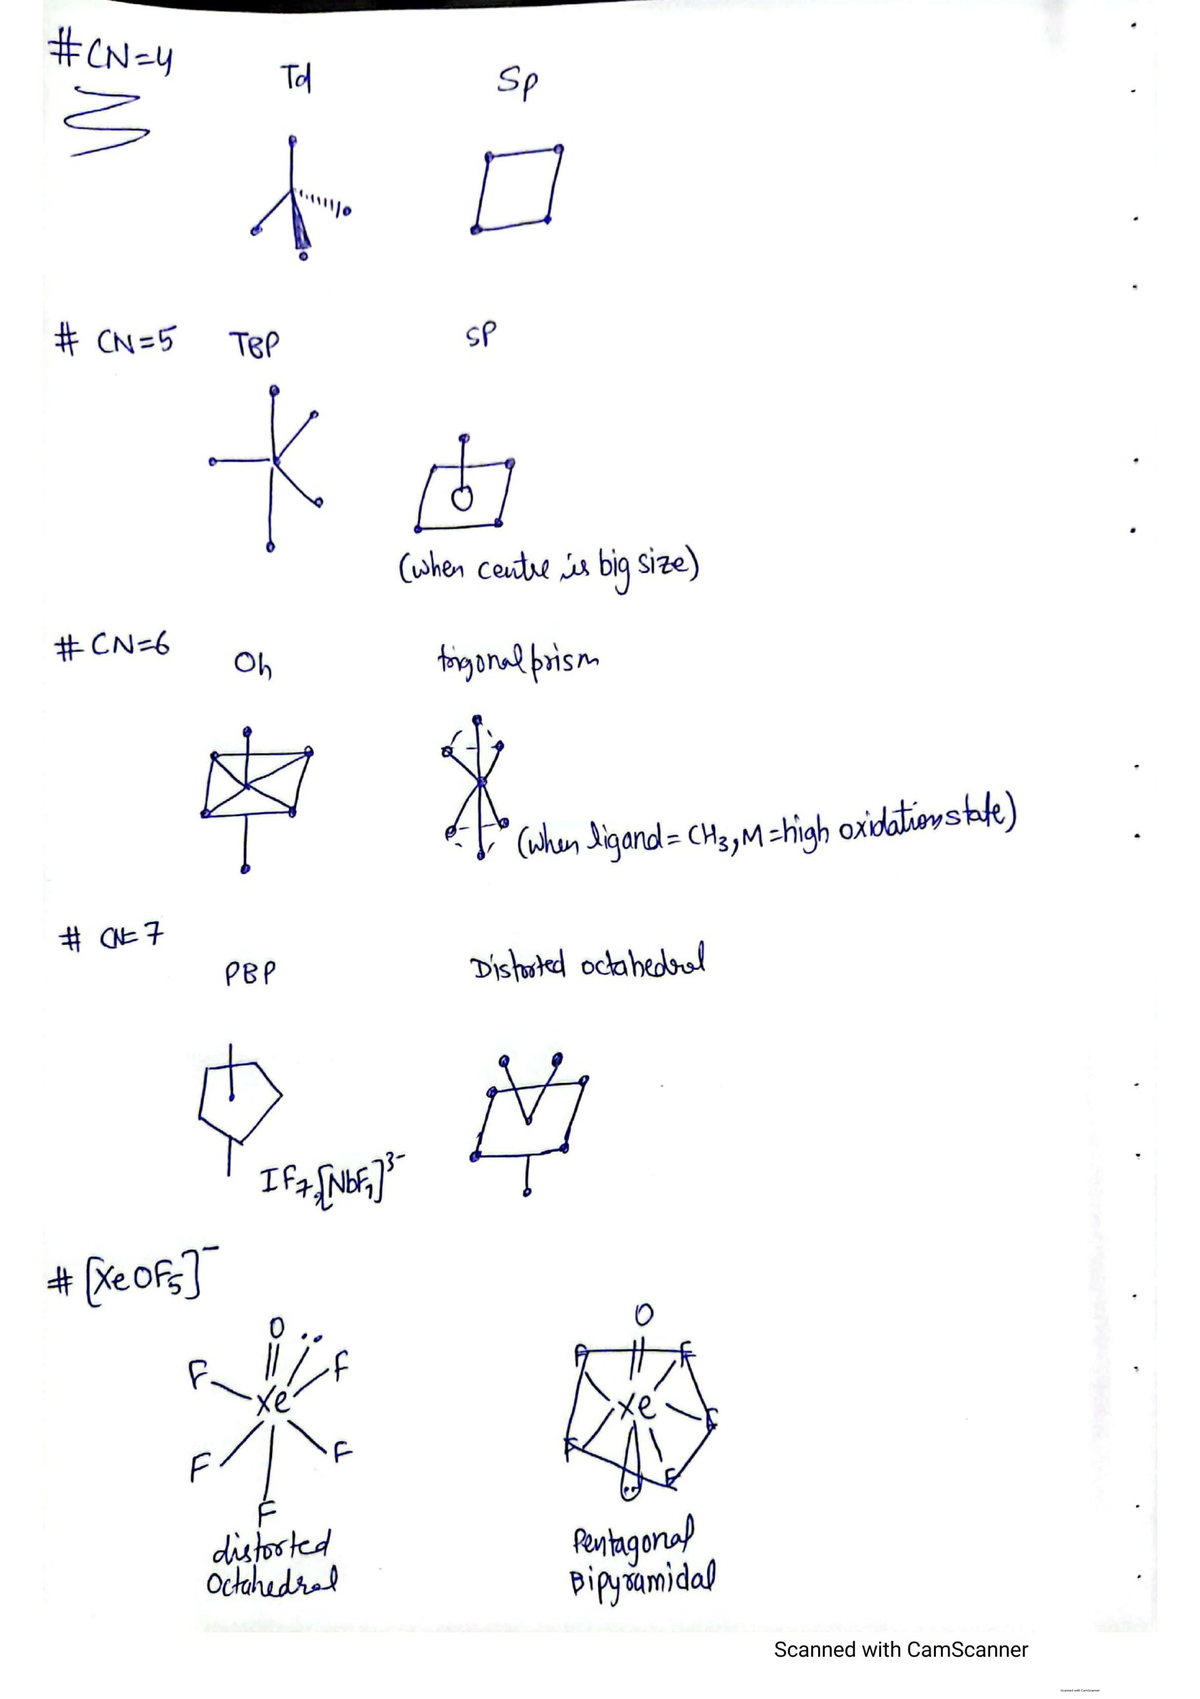 #CN=4
Td
Sp
# CN=5
TBP
SP
(when centre is big size)
# CN=6
Oh
trigonal prism
(when ligand = CH₃, M = high oxidation state)
# CN=7
PBP
Distorted octahedral
IF₇, [NbF₇]³⁻
# [XeOF₅]⁻
O
F
F
Xe
F
F
F
distorted
Octahedral
O
F
F
Xe
F
F
F
Pentagonal
Bipyramidal
Scanned with CamScanner
Scanned with CamScanner